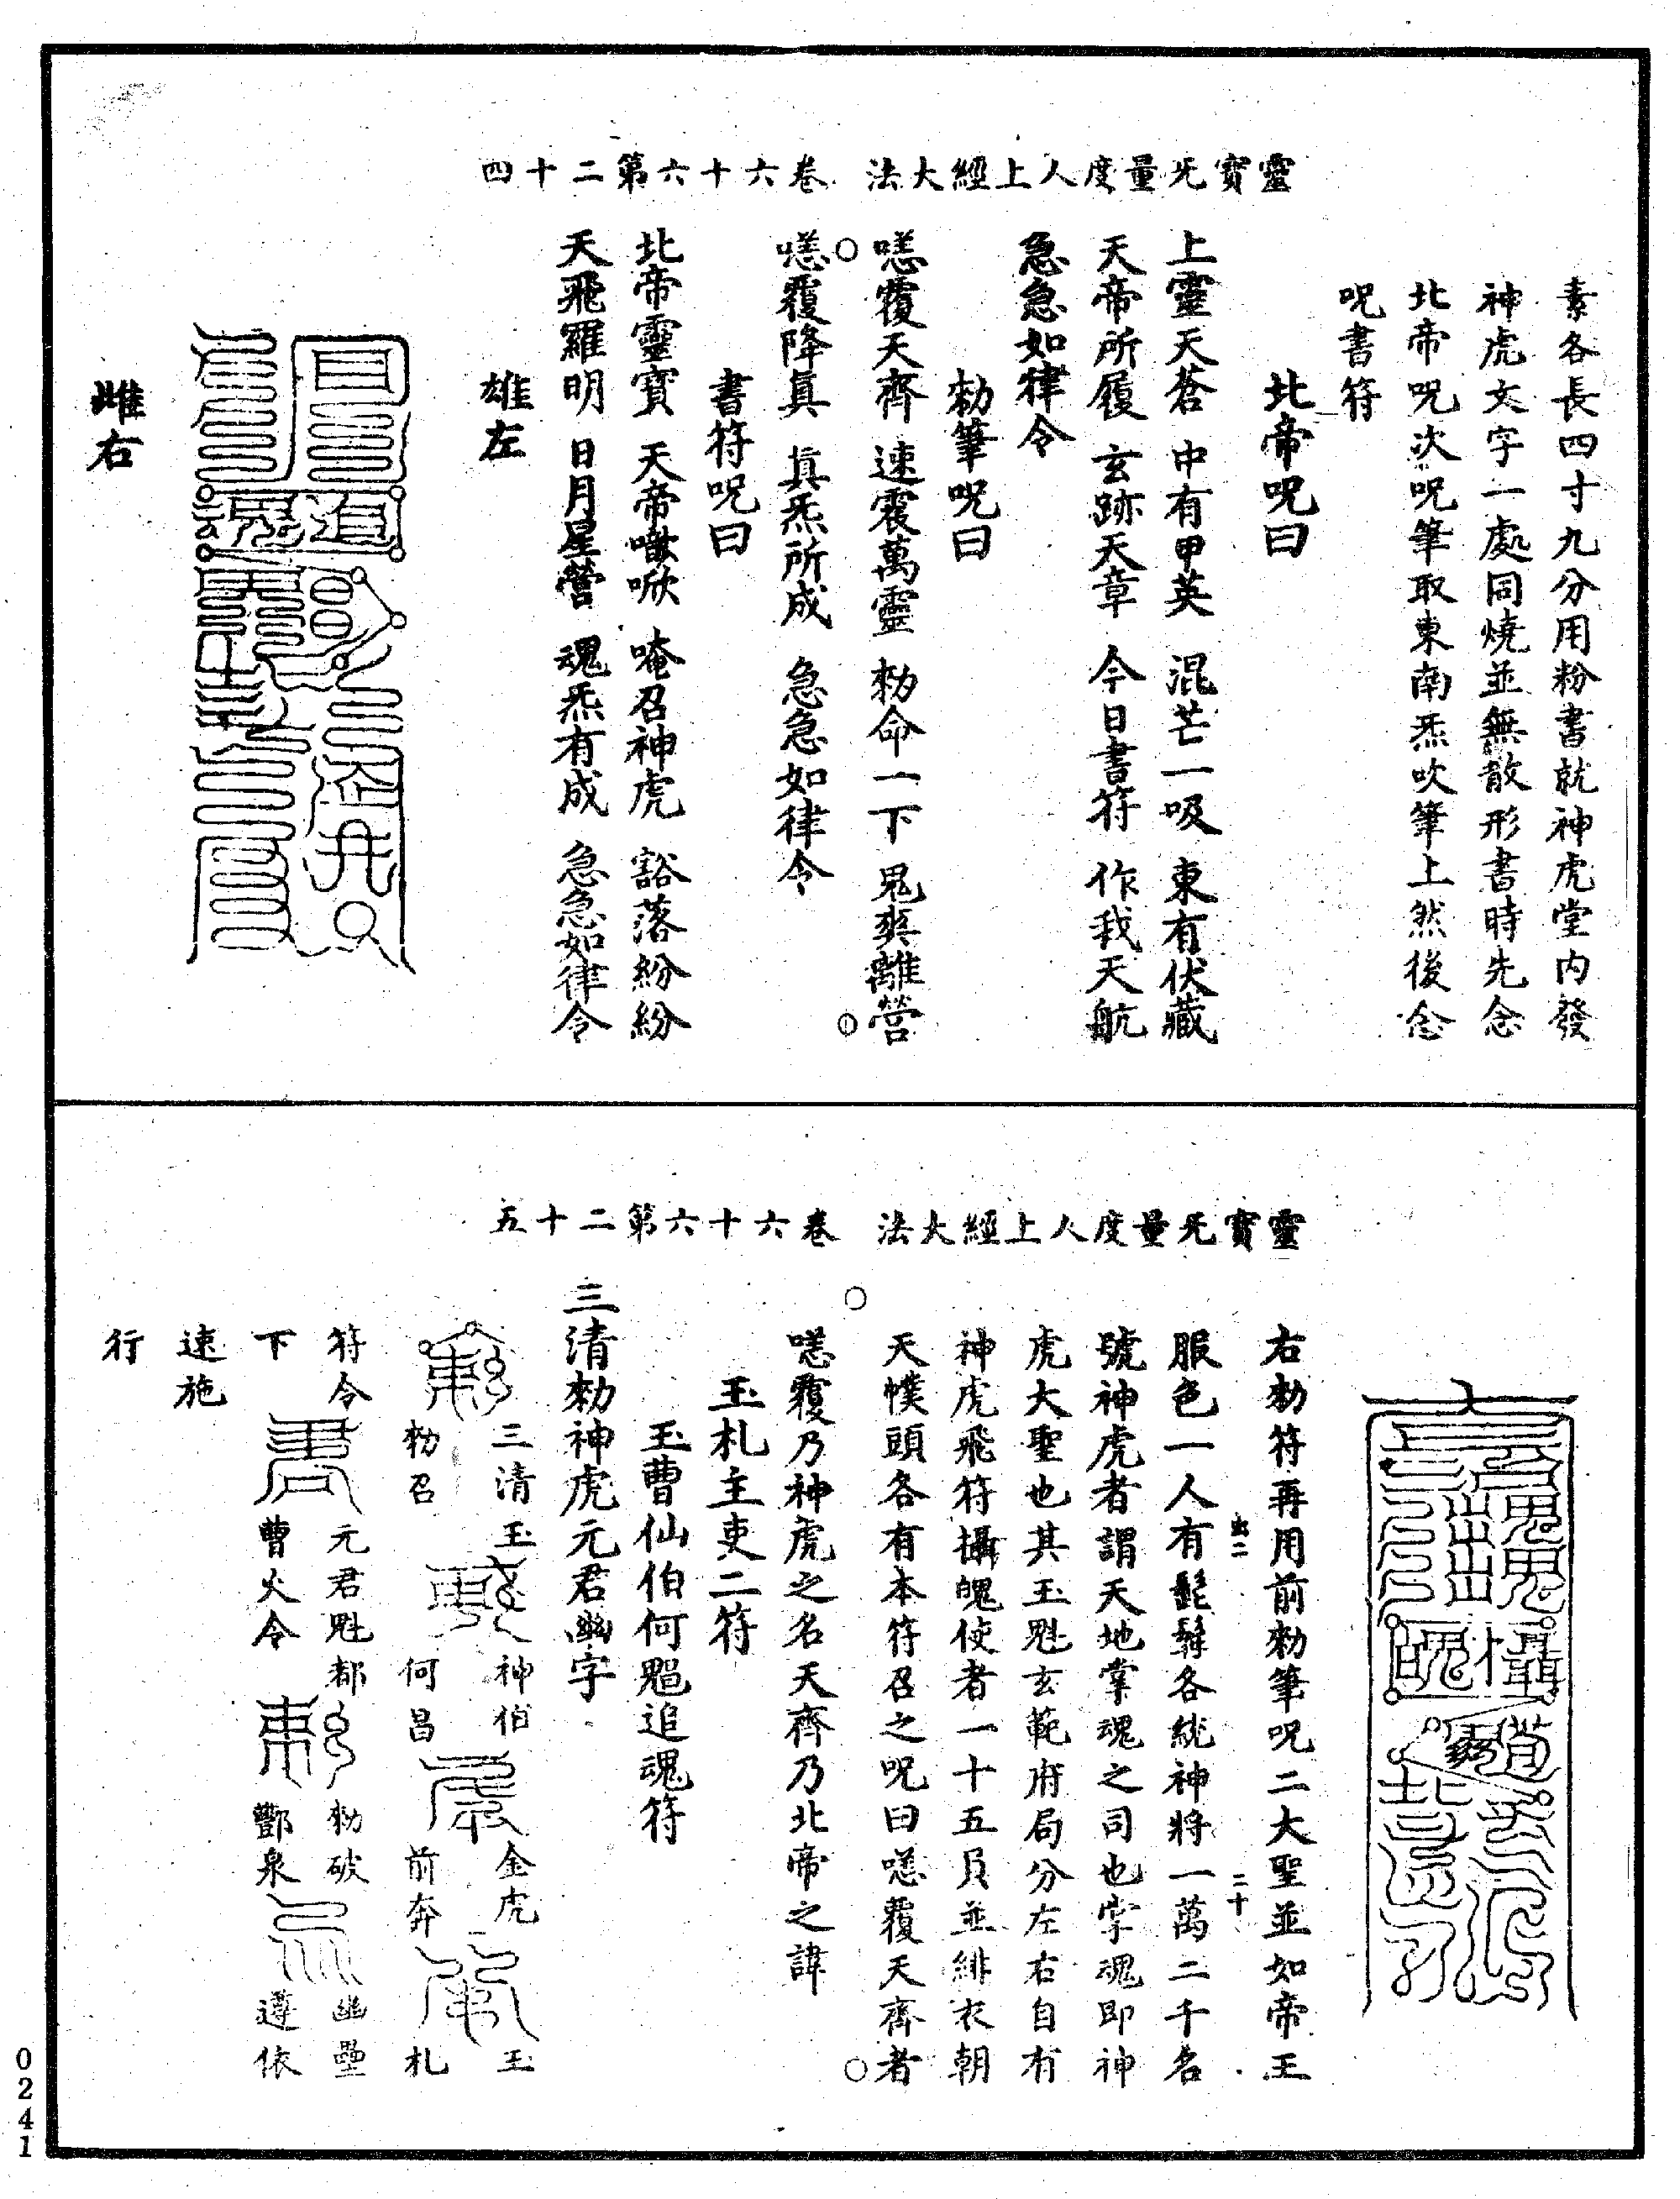 靈寶无量度人上經大法　卷六十六第二十四
素各長四寸九分用粉書就神虎堂內發
神虎文字一處同燒並無散形書時先念
北帝呪次呪筆取東南炁吹筆上然後念
呪書符
北帝呪曰
上靈天蒼　中有甲英　混芒一吸　東有伏藏
天帝所履　玄跡天章　今日書符　作我天航
急急如律令
勑筆呪曰
㗭覆天齊　速震萬靈　勑命一下　鬼爽離營
㗭覆降眞　眞炁所成　急急如律令
書符呪曰
北帝靈寶　天帝　唵召神虎　豁落紛紛
天飛羅明　日月星營　魂炁有成　急急如律令
雄左
雌右
靈寶无量度人上經大法　卷六十六第二十五
右勑符再用前勑筆呪二大聖並如帝王
服色一人有髭髯各統神將一萬二千名
號神虎者謂天地掌魂之司也字魂即神
虎大聖也其玉魁玄範府局分左右自有
神虎飛符攝魄使者一十五員並緋衣朝
天幞頭各有本符召之呪曰㗭覆天齊者
㗭覆乃神虎之名天齊乃北帝之諱
玉札主吏二符
玉曹仙伯何追魂符
三清勑神虎元君幽字
三清玉　神伯　金虎　玉
勑召　何昌　前奔　札
符令　元君魁都　勑破　幽壘
下　曹火令　酆泉　遵依
速施
行
0241